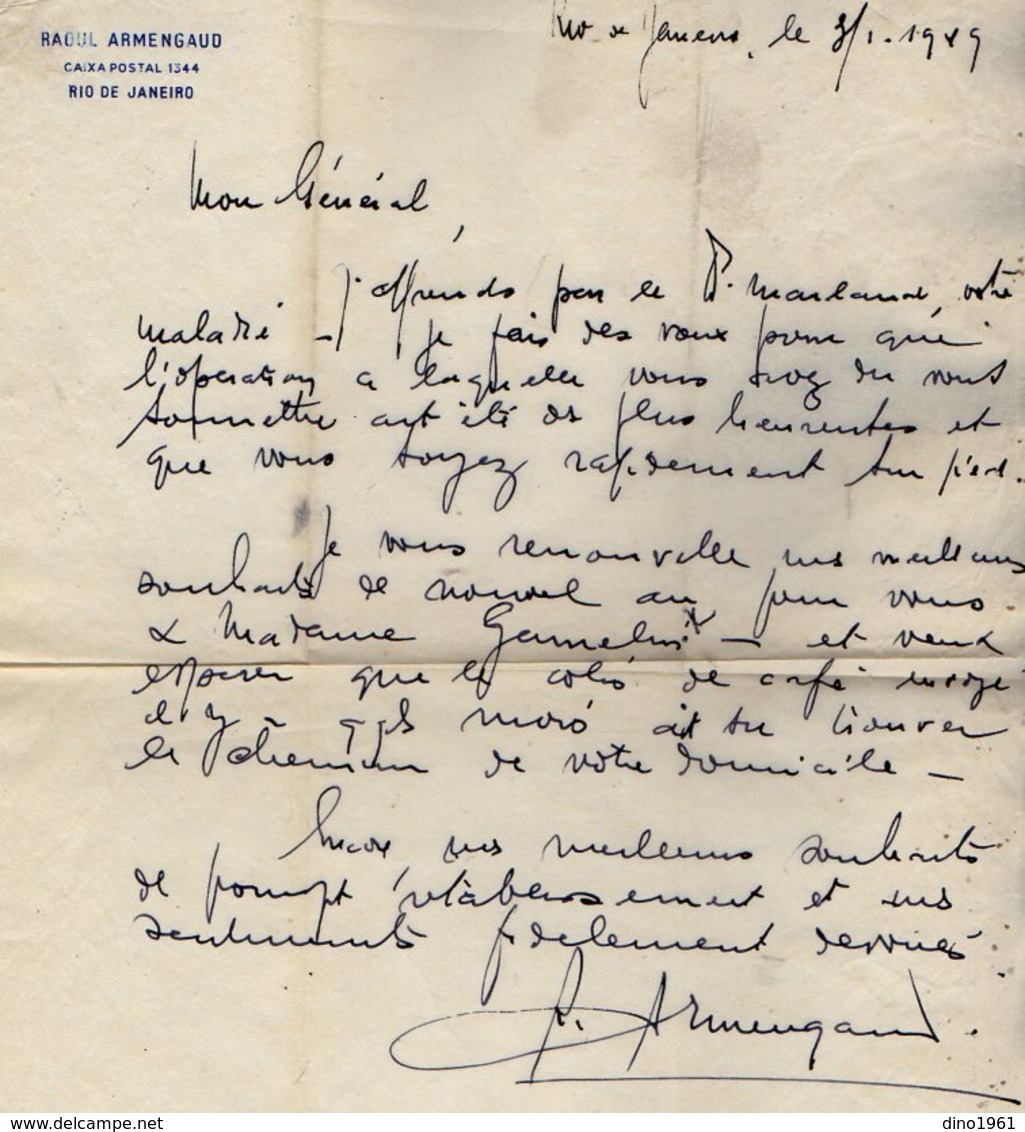 RAOUL ARMENGAUD
CAIXA POSTAL 1344
RIO DE JANEIRO
Rio de Janeiro, le 3/1.1949
Mon Général,
J'apprends par le P. Marland, votre
maladie – Je fais des vœux pour que
l'opération a laquelle vous avez du vous
soumettre ait été des plus heureuses et
que vous soyez rapidement sur pied.
Je vous renouvelle mes meilleurs
souhaits de nouvel an pour vous
& Madame Gamelin – et veux
espérer que le colis de café envoyé
il y a qqls mois ait su trouver
le chemin de votre domicile –
Encore, mes meilleurs souhaits
de prompt rétablissement et mes
sentiments fidelement devoués
R. Armengaud.
www.delcampe.net
dino1961